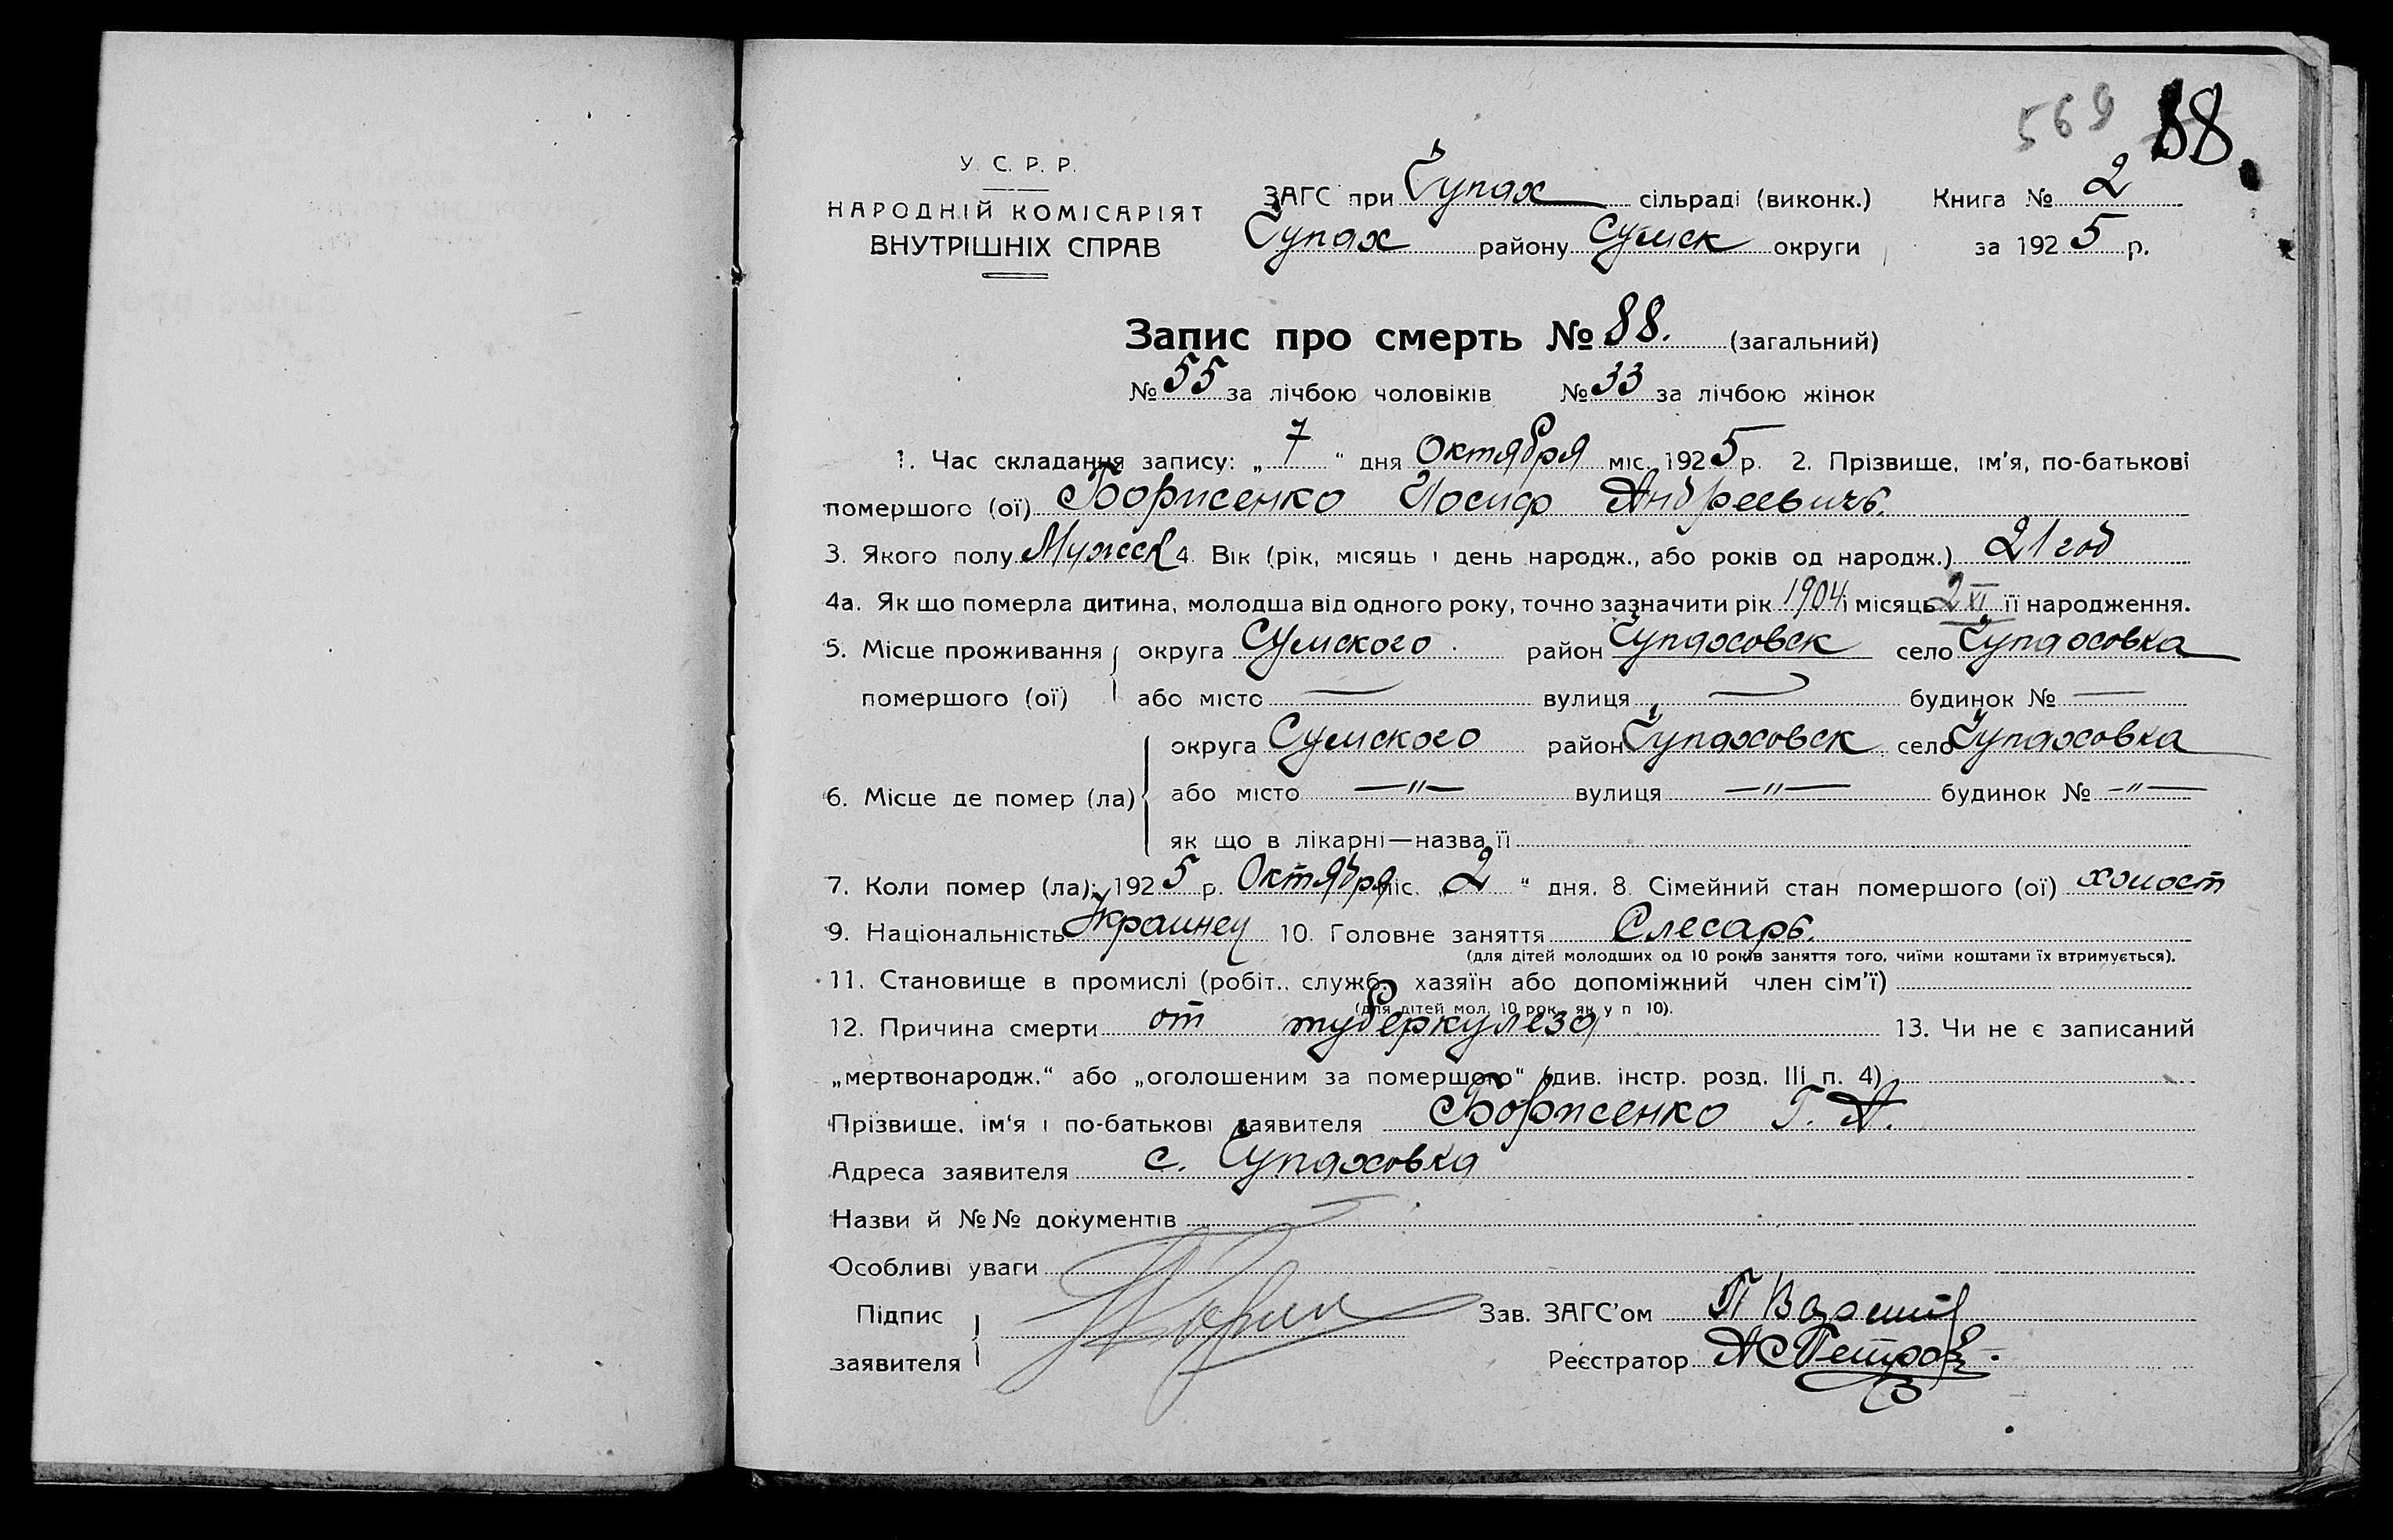 569 88.
У. С. Р. Р.
НАРОДНІЙ КОМІСАРІЯТ
ВНУТРІШНІХ СПРАВ
ЗАГС при Чупах сільраді (виконк.) Книга № 2
Чупах району Сумск округи за 1925 р.
Запис про смерть № 88. (загальний)
№ 55 за лічбою чоловіків № 33 за лічбою жінок
1. Час складання запису: „7“ дня Октября міс. 1925 р. 2. Прізвище, ім'я, по-батькові
помершого (ої) Борисенко Иосиф Андреевичъ.
3. Якого полу Мужск 4. Вік (рік, місяць і день народж., або років од народж.) 21 год
4а. Як що померла дитина, молодша від одного року, точно зазначити рік 1904 і місяць 2 XI її народження.
5. Місце проживання округа Сумского район Чупаховск село Чупаховка
помершого (ої) або місто — вулиця — будинок № —
округа Сумского район Чупаховск село Чупаховка
6. Місце де помер (ла) або місто —"— вулиця —"— будинок № —"—
як що в лікарні—назва її
7. Коли помер (ла): 1925 р. Октября міс. „2“ дня. 8. Сімейний стан помершого (ої) холост
9. Національність Украинец 10. Головне заняття Слесарь.
(для дітей молодших од 10 років заняття того, чиїми коштами їх втримується).
11. Становище в промислі (робіт., служб., хазяїн або допоміжний член сім'ї)
(для дітей мол. 10 рок. як у п 10).
12. Причина смерти от туберкулеза 13. Чи не є записаний
„мертвонародж.“ або „оголошеним за помершого“ (див. інстр. розд. III п. 4)
Прізвище, ім'я і по-батькові заявителя Борисенко Г. А.
Адреса заявителя с. Чупаховка
Назви й №№ документів
Особливі уваги
Підпис Зав. ЗАГС'ом
заявителя Реєстратор АС Петров